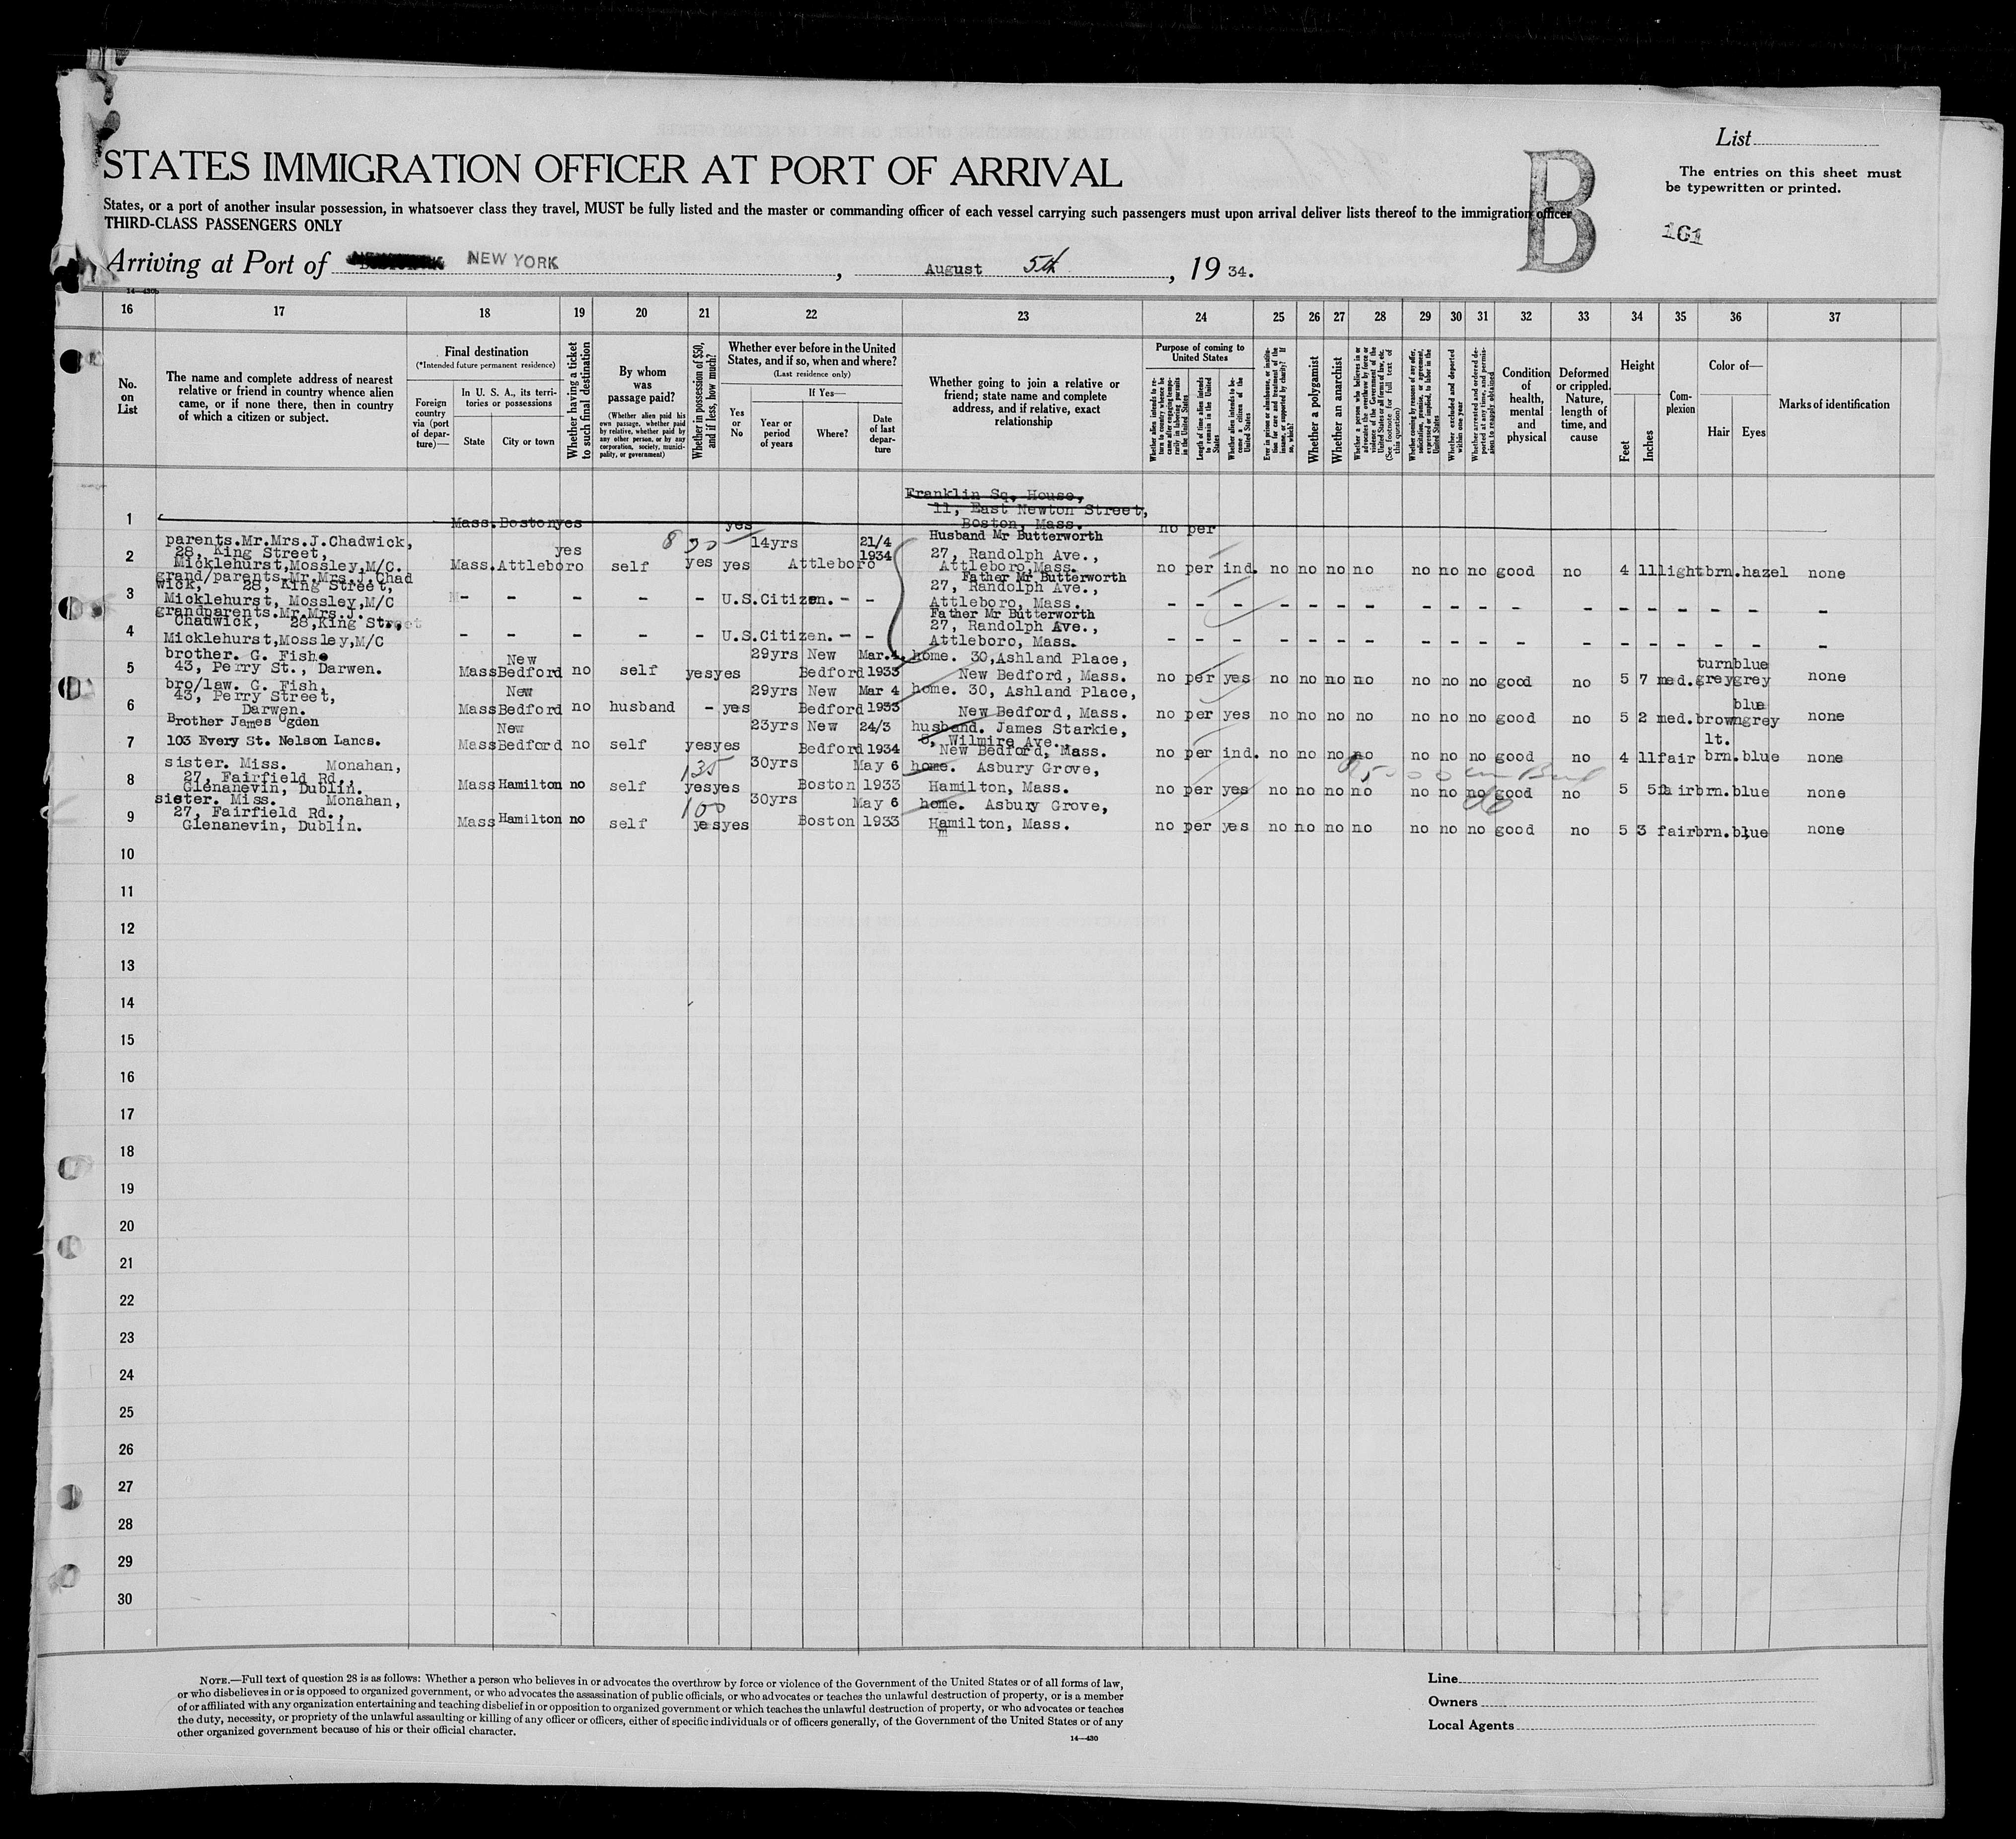 List
STATES IMMIGRATION OFFICER AT PORT OF ARRIVAL
The entries on this sheet must
be typewritten or printed.
B
States, or a port of another insular possession, in whatsoever class they travel, MUST be fully listed and the master or commanding officer of each vessel carrying such passengers must upon arrival deliver lists thereof to the immigration officer
THIRD-CLASS PASSENGERS ONLY
161
Arriving at Port of NEW YORK, August 5th, 19 34.
16 17 18 19 20 21 22 23 24 25 26 27 28 29 30 31 32 33 34 35 36 37
No. on List
The name and complete address of nearest
relative or friend in country whence alien
came, or if none there, then in country
of which a citizen or subject.
Final destination
(*Intended future permanent residence)
Foreign country via (port of departure)—
In U. S. A., its territories or possessions
State
City or town
Whether having a ticket to such final destination
By whom was passage paid?
(Whether alien paid his own passage, whether paid by relative, whether paid by any other person, or by any corporation, society, municipality, or government)
Whether in possession of $50, and if less, how much?
Whether ever before in the United
States, and if so, when and where?
(Last residence only)
Yes or No
If Yes—
Year or period of years
Where?
Date of last departure
Whether going to join a relative or
friend; state name and complete
address, and if relative, exact
relationship
Purpose of coming to United States
Whether alien intends to return to country whence he came after engaging temporarily in laboring pursuits in the United States
Length of time alien intends to remain in the United States
Whether alien intends to become a citizen of the United States
Ever in prison or almshouse, or institution for care and treatment of the insane, or supported by charity? If so, which?
Whether a polygamist
Whether an anarchist
Whether a person who believes in or advocates the overthrow by force or violence of the Government of the United States or all forms of law, etc. (See footnote for full text of this question)
Whether coming by reasons of any offer, solicitation, promise, or agreement, expressed or implied, to labor in the United States
Whether excluded and deported within one year
Whether arrested and ordered deported at any time, and permission to reapply obtained
Condition of health, mental and physical
Deformed or crippled. Nature, length of time, and cause
Height
Feet
Inches
Complexion
Color of—
Hair
Eyes
Marks of identification
Franklin Sq. House,
11, East Newton Street,
1 Mass. Boston yes yes Boston, Mass. no per
parents.Mr.Mrs.J.Chadwick, 14yrs 21/4 Husband Mr Butterworth
2 28, King Street, yes 1934 27, Randolph Ave.,
Micklehurst,Mossley,M/C. Mass. Attleboro self yes yes Attleboro Attleboro,Mass. no per ind. no no no no no no no good no 4 11 light brn. hazel none
grand/parents.Mr.Mrs.J.Chad Father Mr Butterworth
3 wick, 28, King Street, 27, Randolph Ave.,
Micklehurst, Mossley,M/C - - - - - U.S.Citizen. - - Attleboro, Mass. - - - - - - - - - - - - - - - - -
grandparents.Mr.Mrs.J. Father Mr Butterworth
4 Chadwick, 28,King Street 27, Randolph Ave.,
Micklehurst,Mossley,M/C - - - - - U.S.Citizen. - - Attleboro, Mass. - - - - - - - - - - - - - - - - -
brother. G. Fish. New 29yrs New Mar.4. home. 30,Ashland Place, turn blue
5 43, Perry St., Darwen. Mass Bedford no self yes yes Bedford 1933 New Bedford, Mass. no per yes no no no no no no no good no 5 7 med. grey grey none
bro/law. G. Fish, New 29yrs New Mar 4 home. 30, Ashland Place,
6 43, Perry Street, blue
Darwen. Mass Bedford no husband - yes Bedford 1933 New Bedford, Mass. no per yes no no no no no no no good no 5 2 med. brown grey none
Brother James Ogden New 23yrs New 24/3 husband. James Starkie, lt.
7 103 Every St. Nelson Lancs. Mass Bedford no self yes yes Bedford 1934 Wilmire Ave., New Bedford, Mass. no per ind. no no no no no no no good no 4 11 fair brn. blue none
sister. Miss. Monahan, 135 30yrs May 6 home. Asbury Grove,
8 27, Fairfield Rd.,
Glenanevin, Dublin. Mass Hamilton no self yes yes Boston 1933 Hamilton, Mass. no per yes no no no no no no no good no 5 5 fair brn. blue none
sister. Miss. Monahan, 100 30yrs May 6 home. Asbury Grove, do
9 27, Fairfield Rd.,
Glenanevin, Dublin. Mass Hamilton no self yes yes Boston 1933 Hamilton, Mass. no per yes no no no no no no no good no 5 3 fair brn. blue none
10
11
12
13
14
15
16
17
18
19
20
21
22
23
24
25
26
27
28
29
30
NOTE.—Full text of question 28 is as follows: Whether a person who believes in or advocates the overthrow by force or violence of the Government of the United States or of all forms of law,
or who disbelieves in or is opposed to organized government, or who advocates the assassination of public officials, or who advocates or teaches the unlawful destruction of property, or is a member
of or affiliated with any organization entertaining and teaching disbelief in or opposition to organized government or which teaches the unlawful destruction of property, or who advocates or teaches
the duty, necessity, or propriety of the unlawful assaulting or killing of any officer or officers, either of specific individuals or of officers generally, of the Government of the United States or of any
other organized government because of his or their official character.
14—430
Line
Owners
Local Agents